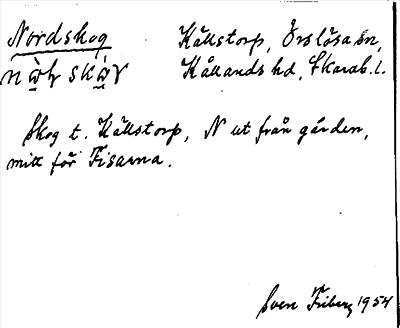 Nordskog Källstorp, Örslösa sn,
Kållands hd, Skarab. l.
Skog t. Källstorp, N ut från gården,
mitt för Fisarna.
Sven Friberg 1954